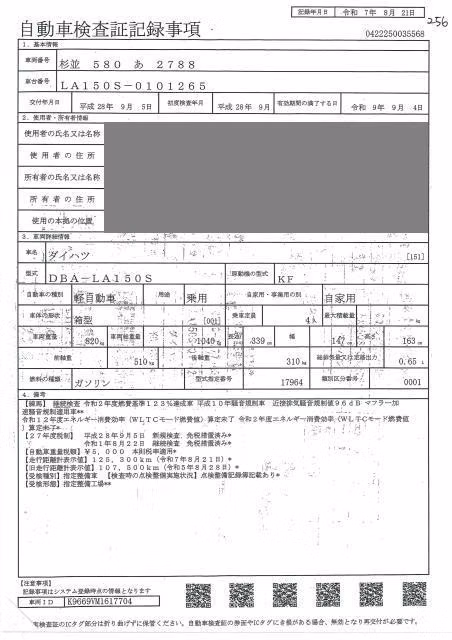 記録年月日 令和 7年 8月 21日
256
自動車検査証記録事項
0422250035568
1. 基本情報
車両番号 杉並 580 あ 2788
車台番号 LA150S-0101265
交付年月日 平成 28年 9月 5日 初度検査年月 平成 28年 9月 有効期間の満了する日 令和 9年 9月 4日
2. 使用者・所有者情報
使用者の氏名又は名称
使用者の住所
所有者の氏名又は名称
所有者の住所
使用の本拠の位置
3. 車両詳細情報
車名 ダイハツ [151]
型式 DBA-LA150S 原動機の型式 KF
自動車の種別 軽自動車 用途 乗用 自家用・事業用の別 自家用
車体の形状 箱型 [001] 乗車定員 4人 最大積載量
車両重量 820kg 車両総重量 1040kg 長さ 339cm 幅 147cm 高さ 163cm
前軸重 510kg 後軸重 310kg 総排気量又は定格出力 0.65L
燃料の種類 ガソリン 型式指定番号 17964 類別区分番号 0001
4. 備考
【練馬】 継続検査 令和2年度燃費基準123%達成車 平成10年騒音規制車 近接排気騒音規制値96dB マフラー加
速騒音規制適用車**
令和12年度エネルギー消費効率(WLTCモード燃費値)算定未了 令和2年度エネルギー消費効率(WLTCモード燃費値
)算定未了*
【27年度税制】 平成28年9月5日 新規検査 免税措置済み*
令和1年8月22日 継続検査 免税措置済み*
【自動車重量税額】¥5,000 本則税率適用*
[走行距離計表示値] 125,300km(令和7年8月21日)*
[旧走行距離計表示値] 107,500km(令和5年8月28日)*
【受検種別】指定整備車 【検査時の点検整備実施状況】点検整備記録簿記載あり*
【受検形態】指定整備工場**
【注意事項】
記載事項はシステム登録時点の情報となります
車両ID K9669VM1617704
検査証のICタグ部分は折り曲げずに保管ください。自動車検査証の券面やICタグに毀損がある場合、無効となり再交付が必要です。